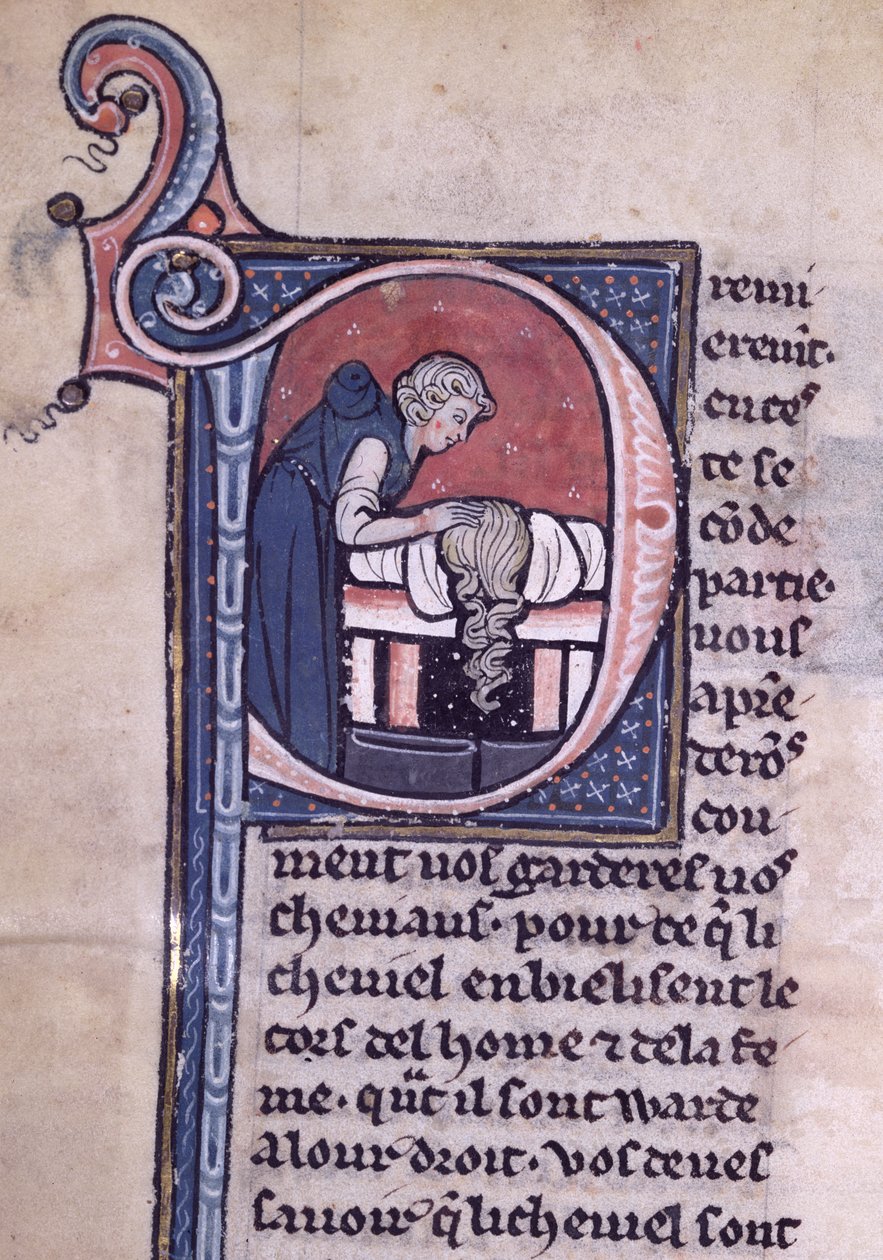 Premi-
erem̄t.
en ceˢ
te se
cōde
partie.
uous
aprē-
derōˢ
cou-
ment uos garderes uoˢ
cheuiaus. pour ce q̄ li
cheuiel enbielisent le
cors del home ⁊ de la fe-
me. qūt il sont warde
a lour droit. vos deues
sauoir q̄ li cheuiel sont